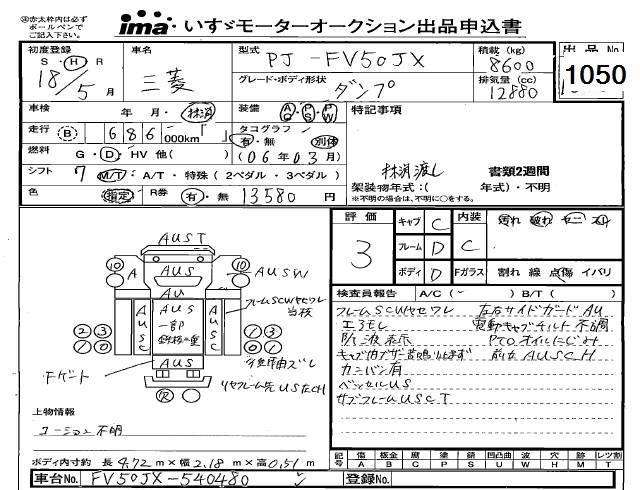 ※赤太枠内は必ず
ボールペンで
ご記入下さい。
ima いすゞモーターオークション出品申込書
初度登録 車名 型式 PJ-FV50JX 積載 (kg) 8600 出品No
S・H・R 18年5月 三菱 グレード・ボディ形状 ダンプ 排気量 (cc) 12880 1050
車検 年 月・抹消 装備 AC PS PW 特記事項
走行 B 686 000km タコグラフ 有・無 別体
燃料 G・D・HV 他( ) (06年03月)
抹消渡し 書類2週間
シフト 7 M/T・A/T・特殊(2ペダル・3ペダル) 架装物年式:( 年式)・不明
※不明の場合は、不明に○をする。
色 指定 R券 有・無 13580 円
評価 3 キャブ C 内装 C 汚れ 破れ
フレーム D
ボディ D Fガラス 割れ 線 点傷 イバリ
AUST
10 A AUS 10 AUSW
AU
フレームSCWサビワレ
AUSC AUS AUSC
一部
2 3 1 3
1 0 1 0
AUS
Fゲート
R
検査員報告 A/C( ) B/T( )
フレームSCWサビワレ 左右サイドガードAU
エアモレ 電動キャブチルト不調
PTOオイルにじみ
AUSCH
カンバン有
ベッセルUS
サブフレームUSCT
上物情報
コーション不明
ボディ内寸約 長4.72m×幅2.18m×高0.51m
記号 傷A 板金B 腐C 塗P 錆S 凹凸曲U 波W 穴H 汚M レツ割T
車台No. FV50JX-540480 登録No.